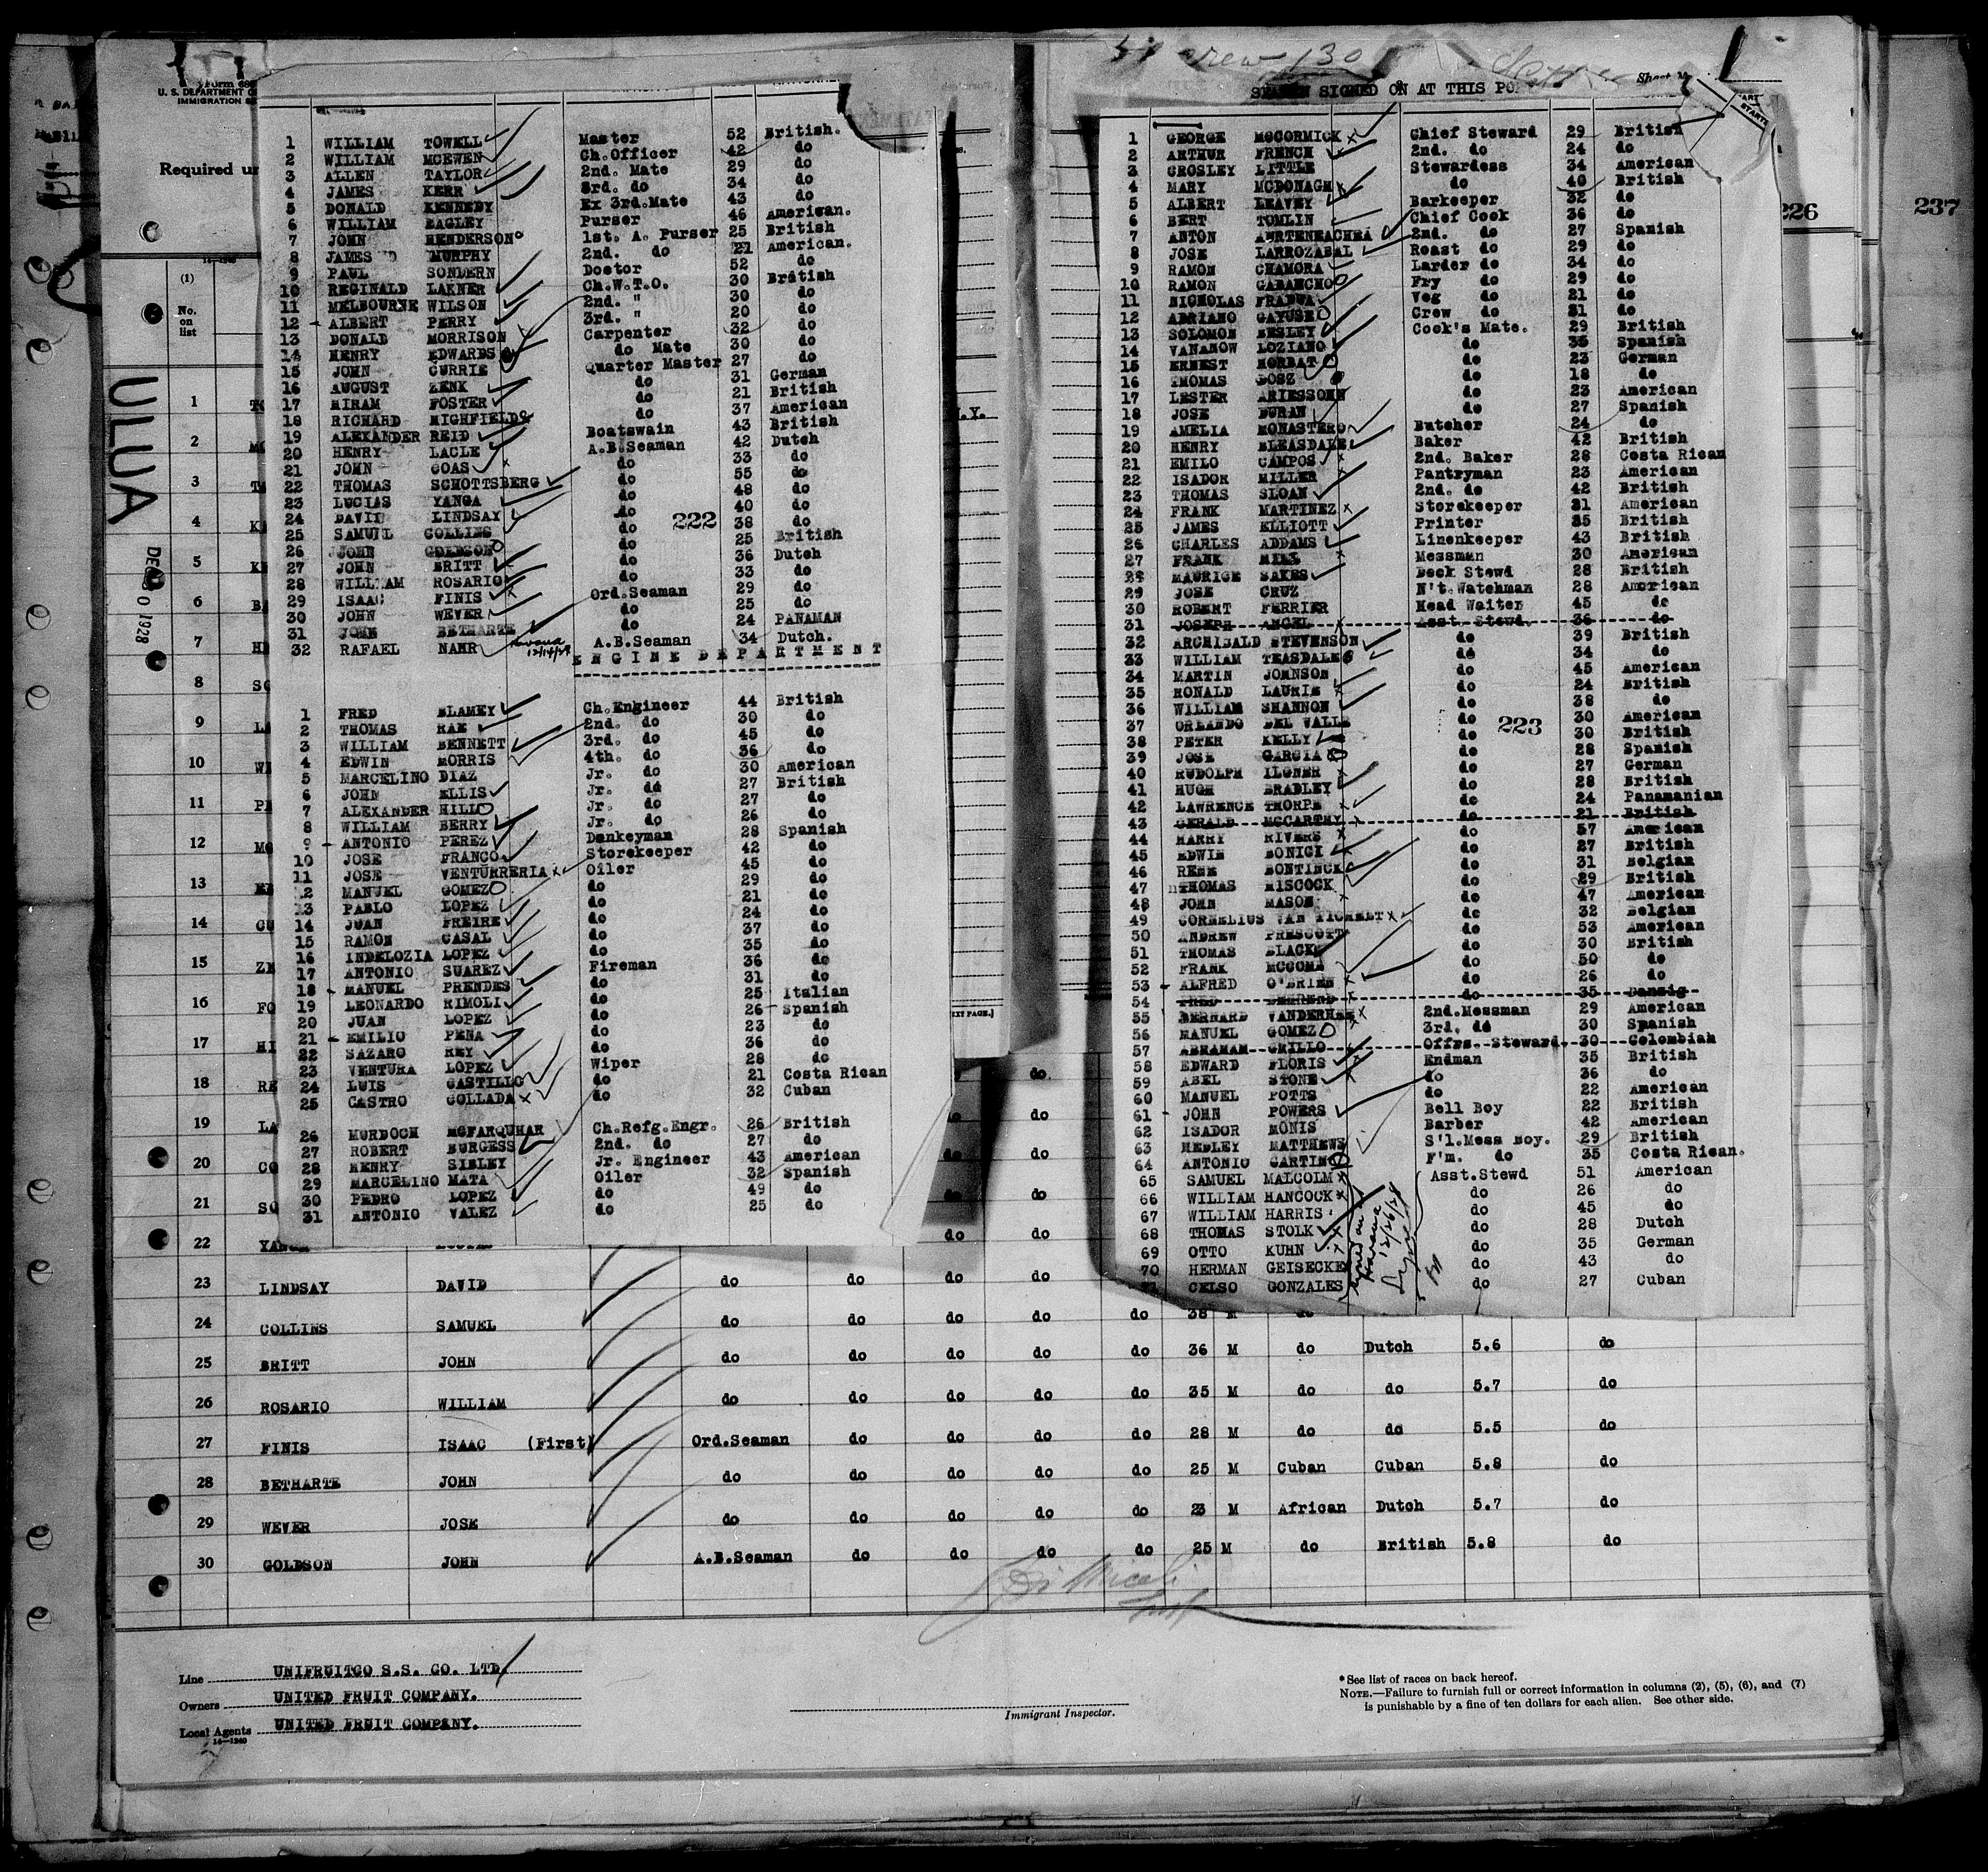 Form 68
U. S. DEPARTMENT O
IMMIGRATION SE
Required un
(1)
No.
on
list
ULUA
DEC 30 1928
1 WILLIAM TOWELL Master 52 British.
2 WILLIAM MCEWEN Ch.Officer 42 do
3 ALLEN TAYLOR 2nd. Mate 29 do
4 JAMES KERR 3rd. do 34 do
5 DONALD KENNEDY Ex 3rd.Mate 43 do
6 WILLIAM BAGLEY Purser 46 American.
7 JOHN HENDERSON 1st. A. Purser 25 British
8 JAMES D MURPHY 2nd. do 21 American.
9 PAUL SONDERN Doctor 52 do
10 REGINALD LAKNER Ch.W.T.O. 30 British
11 MELBOURNE WILSON 2nd. " 30 do
12 ALBERT PERRY 3rd. " 20 do
13 DONALD MORRISON Carpenter 32 do
14 HENRY EDWARDS do Mate 30 do
15 JOHN CURRIE Quarter Master 27 do
16 AUGUST ZENK do 31 German
17 HIRAM FOSTER do 21 British
18 RICHARD HIGHFIELD do 37 American
19 ALEXANDER REID Boatswain 43 British
20 HENRY LACLE A.B.Seaman 42 Dutch
21 JOHN GOAS do 33 do
22 THOMAS SCHOTTSBERG do 55 do
23 LUCIAS YANGA do 48 do
24 DAVID LINDSAY do 40 do
25 SAMUEL COLLINS do 38 do
26 JOHN GOLDSON do 25 British
27 JOHN BRITT do 36 Dutch
28 WILLIAM ROSARIO do 33 do
29 ISAAC FINIS Ord.Seaman 29 do
30 JOHN WEVER do 25 do
31 JOHN BETHARTE do 24 PANAMAN
32 RAFAEL NAHR Havana 12/14/28 A.B.Seaman 34 Dutch.
222
ENGINE DEPARTMENT
1 FRED BLAMEY Ch.Engineer 44 British
2 THOMAS RAE 2nd. do 30 do
3 WILLIAM BENNETT 3rd. do 45 do
4 EDWIN MORRIS 4th. do 36 do
5 MARCELINO DIAZ Jr. do 30 American
6 JOHN ELLIS Jr. do 27 British
7 ALEXANDER HILL Jr. do 27 do
8 WILLIAM BERRY Jr. do 26 do
9 ANTONIO PEREZ Donkeyman 28 Spanish
10 JOSE FRANCO Storekeeper 42 do
11 JOSE VENTURRERIA Oiler 45 do
12 MANUEL GOMEZ do 29 do
13 PABLO LOPEZ do 21 do
14 JUAN FREIRE do 24 do
15 RAMON CASAL do 37 do
16 INDELOZIA LOPEZ do 35 do
17 ANTONIO SUAREZ Fireman 36 do
18 MANUEL PRENDES do 31 do
19 LEONARDO RIMOLI do 25 Italian
20 JUAN LOPEZ do 26 Spanish
21 EMILIO PENA do 23 do
22 SAZARO REY do 36 do
23 VENTURA LOPEZ Wiper 28 do
24 LUIS CASTILLO do 21 Costa Rican
25 CASTRO COLLADA do 32 Cuban
26 MURDOCH MCFARQUHAR Ch.Refg.Engr. 26 British
27 ROBERT BURGESS 2nd. do 27 do
28 HENRY SIBLEY Jr. Engineer 43 American
29 MARCELINO MATA Oiler 32 Spanish
30 PEDRO LOPEZ do 49 do
31 ANTONIO VALEZ do 25 do
crew 130
Sheet N
SEAMEN SIGNED ON AT THIS PO
1 GEORGE MCCORMICK Chief Steward 29 British
2 ARTHUR FRENCH 2nd. do 24 do
3 CROSLEY LITTLE Stewardess 34 American
4 MARY MCDONAGH do 40 British
5 ALBERT LEAVEY Barkeeper 32 do
6 BERT TOMLIN Chief Cook 36 do
7 ANTON AURTENEACHEA 2nd. do 27 Spanish
8 JOSE LARROZABAL Roast do 29 do
9 RAMON CHAMORA Larder do 34 do
10 RAMON GABANCHO Fry do 29 do
11 NICHOLAS FRADUA Veg do 21 do
12 ADRIANO GAYUSE Crew do 31 do
13 SOLOMON BESLEY Cook's Mate. 29 British
14 VANANOW LOZIANO do 35 Spanish
15 ERNEST MORBAT do 23 German
16 THOMAS DOSZ do 18 do
17 LESTER ARIESSOHN do 23 American
18 JOSE DURAN do 27 Spanish
19 AMELIA MONASTERO Butcher 24 do
20 HENRY BLEASDALE Baker 42 British
21 EMILO CAMPOS 2nd. Baker 28 Costa Rican
22 ISADOR MILLER Pantryman 23 American
23 THOMAS SLOAN 2nd. do 42 British
24 FRANK MARTINEZ Storekeeper 31 American
25 JAMES ELLIOTT Printer 35 British
26 CHARLES ADDAMS Linenkeeper 43 British
27 FRANK MILL Messman 30 American
28 MAURICE SAKES Deck Stewd 28 British
29 JOSE CRUZ N't.Watchman 28 American
30 ROBERT FERRIER Head Waiter 45 do
31 JOSEPH ANGEL Asst. Stewd. 36 do
32 ARCHIBALD STEVENSON do 39 British
33 WILLIAM TEASDALE do 34 do
34 MARTIN JOHNSON do 45 American
35 RONALD LAURIE do 24 British
36 WILLIAM SHANNON do 38 do
37 ORLANDO DEL VALLE do 30 American
38 PETER KELLY do 30 British
39 JOSE GARCIA do 28 Spanish
40 RUDOLPH ILGNER do 27 German
41 HUGH BRADLEY do 28 British
42 LAWRENCE THORPE do 24 Panamanian
43 GERALD MCCARTHY do 21 British
44 HARRY RIVERS do 57 American
45 EDWIN BONICI do 27 British
46 RENE BONTINCK do 31 Belgian
47 THOMAS HISCOCK do 29 British
48 JOHN MASON do 47 American
49 CORNELIUS VAN TICHELT do 32 Belgian
50 ANDREW PRESCOTT do 53 American
51 THOMAS BLACK do 30 British
52 FRANK MCCOMA do 50 do
53 ALFRED O'BRIEN do 26 do
54 FRED BEHREND do 35 Danzig
55 BERNARD VANDERHAM 2nd.Messman 29 American
56 MANUEL GOMEZ 3rd. do 30 Spanish
57 ABRAHAM GRILLO Offrs. Steward. 30 Colombiah
58 EDWARD FLORIS Endman 35 British
59 ABEL STONE do 36 do
60 MANUEL POTTS do 22 American
61 JOHN POWERS Bell Boy 22 British
62 ISADOR MONIS Barber 42 American
63 MEDLEY MATTHEWS S'l.Mess Boy. 29 British
64 ANTONIO CARTIN F'm. do 35 Costa Rican.
65 SAMUEL MALCOLM Asst.Stewd 51 American
66 WILLIAM HANCOCK do 26 do
67 WILLIAM HARRIS do 45 do
68 THOMAS STOLK do 28 Dutch
69 OTTO KUHN do 35 German
70 HERMAN GEISECKE do 43 do
71 CELSO GONZALES do 27 Cuban
signed on Havana 12/26/28
223
226
237
1
2
3
4
5
6
7
8
9
10
11
12
13
14
15
16
17
18
19
20
21
22
23 LINDSAY DAVID do do do do
24 COLLINS SAMUEL do do do do do 38 M do
25 BRITT JOHN do do do do do 36 M do Dutch 5.6 do
26 ROSARIO WILLIAM do do do do do 35 M do do 5.7 do
27 FINIS ISAAC (First) Ord.Seaman do do do do 28 M do do 5.5 do
28 BETHARTE JOHN do do do do do 25 M Cuban Cuban 5.8 do
29 WEVER JOSE do do do do do 23 M African Dutch 5.7 do
30 GOLDSON JOHN A.B.Seaman do do do do 25 M do British 5.8 do
Line UNIFRUITCO S.S. CO. LTD.
Owners UNITED FRUIT COMPANY.
Local Agents UNITED FRUIT COMPANY.
14—1240
Immigrant Inspector.
*See list of races on back hereof.
NOTE.—Failure to furnish full or correct information in columns (2), (5), (6), and (7)
is punishable by a fine of ten dollars for each alien. See other side.